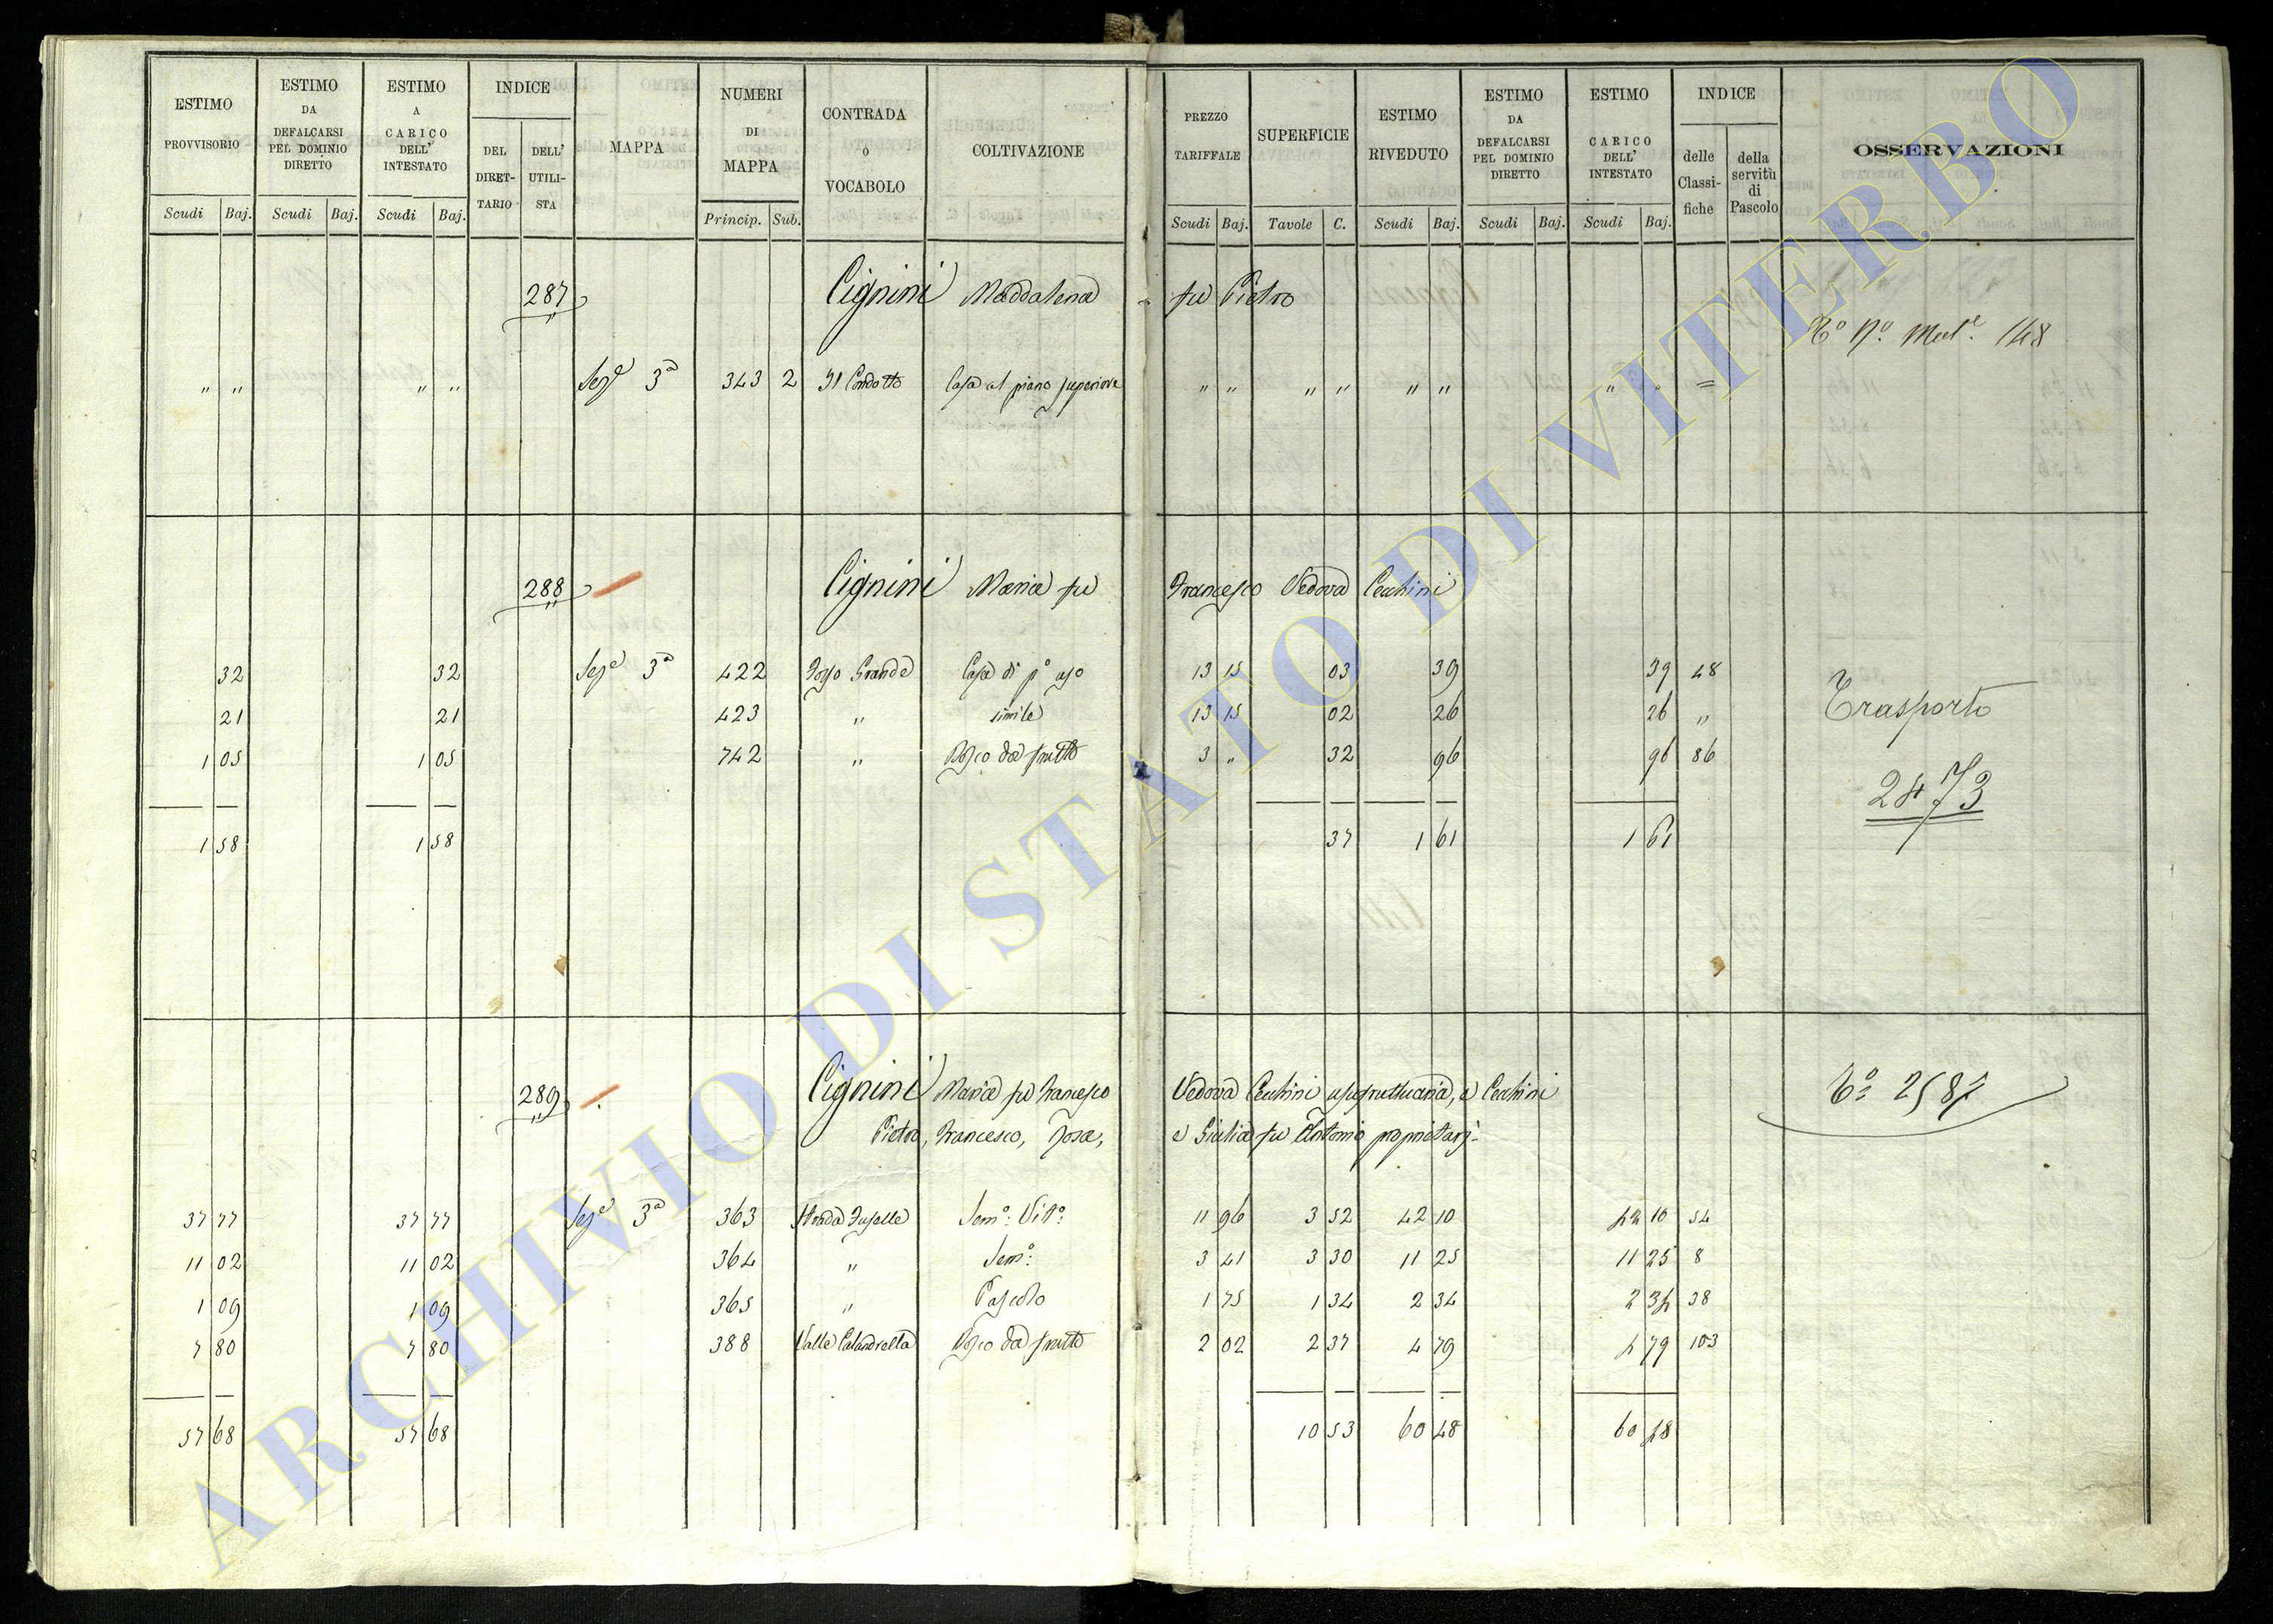 ESTIMO PROVVISORIO
ESTIMO DA DEFALCARSI PEL DOMINIO DIRETTO
ESTIMO A CARICO DELL' INTESTATO
INDICE
DEL DIRET-TARIO
DELL' UTILI-STA
MAPPA
NUMERI DI MAPPA
CONTRADA o VOCABOLO
COLTIVAZIONE
PREZZO TARIFFALE
SUPERFICIE
ESTIMO RIVEDUTO
ESTIMO DA DEFALCARSI PEL DOMINIO DIRETTO
ESTIMO CARICO DELL' INTESTATO
INDICE
delle Classi-fiche
della servitù di Pascolo
OSSERVAZIONI
Scudi Baj. Scudi Baj. Scudi Baj. Princip. Sub. Scudi Baj. Tavole C. Scudi Baj. Scudi Baj. Scudi Baj.
287 Cignini Maddalena fu Pietro
No. Mut. 148
" " " " Sez.e 3a 343 2 Il Condotto Casa al piano superiore " " " " " " " " =
288 Cignini Maria fu Francesco Vedova Cecchini
32 32 Sez.e 3a 422 Fosso Grande Casa di po uso 13 15 03 39 39 48
21 21 423 " simile 13 15 02 26 26 "
1 05 1 05 742 " Bosco da frutto 3 " 32 96 96 86
Trasporto
2473
1 58 1 58 37 1 61 1 61
289 Cignini Maria fu Francesco Vedova Cecchini usufruttuaria, e Cecchini
Pietro, Francesco, Rosa, e Giulia fu Antonio proprietarj
37 77 37 77 Sez.e 3a 363 Semo. Vito. 11 96 3 52 42 10 42 10 54
11 02 11 02 364 " Semo. 3 41 3 30 11 25 11 25 8
1 09 1 09 365 " Pascolo 1 75 1 34 2 34 2 34 38
7 80 7 80 388 Valle Calandrella Bosco da frutto 2 02 2 37 4 79 4 79 103
57 68 57 68 10 53 60 48 60 48
ARCHIVIO DI STATO DI VITERBO